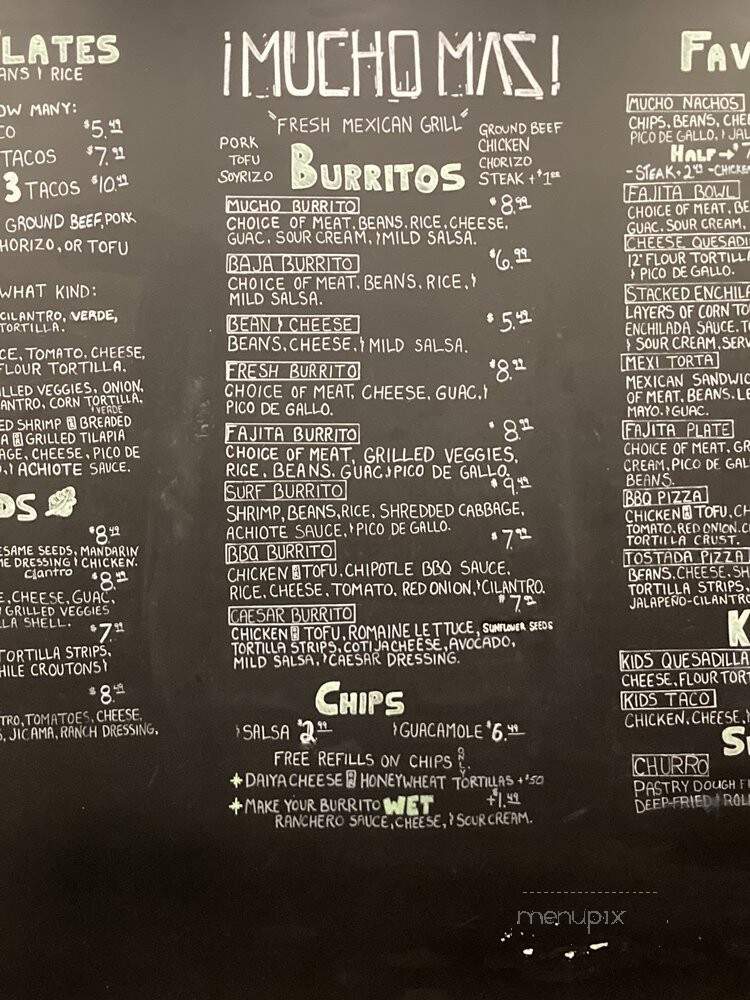 LATES
ANS & RICE
OW MANY:
CO $5.49
TACOS $7.99
3 TACOS $10.49
GROUND BEEF, PORK
HORIZO, OR TOFU
WHAT KIND:
CILANTRO, VERDE,
TORTILLA.
CE, TOMATO, CHEESE,
FLOUR TORTILLA.
LLED VEGGIES, ONION,
ANTRO, CORN TORTILLA,
VERDE
ED SHRIMP OR BREADED
A OR GRILLED TILAPIA
AGE, CHEESE, PICO DE
, & ACHIOTE SAUCE.
DS
$8.49
ESAME SEEDS, MANDARIN
ME DRESSING & CHICKEN.
Cilantro $8.49
E, CHEESE, GUAC,
GRILLED VEGGIES
LLA SHELL.
$7.99
TORTILLA STRIPS,
HILE CROUTONS
$8.49
TRO, TOMATOES, CHEESE,
S, JICAMA, RANCH DRESSING,
¡MUCHO MAS!
"FRESH MEXICAN GRILL"
PORK
TOFU
SOYRIZO
BURRITOS
GROUND BEEF
CHICKEN
CHORIZO
STEAK + $1.00
MUCHO BURRITO $8.99
CHOICE OF MEAT, BEANS, RICE, CHEESE,
GUAC, SOUR CREAM, & MILD SALSA.
BAJA BURRITO $6.99
CHOICE OF MEAT, BEANS, RICE, &
MILD SALSA.
BEAN & CHEESE $5.49
BEANS, CHEESE, & MILD SALSA.
FRESH BURRITO $8.99
CHOICE OF MEAT, CHEESE, GUAC, &
PICO DE GALLO.
FAJITA BURRITO $8.99
CHOICE OF MEAT, GRILLED VEGGIES,
RICE, BEANS, GUAC & PICO DE GALLO.
SURF BURRITO $9.49
SHRIMP, BEANS, RICE, SHREDDED CABBAGE,
ACHIOTE SAUCE, & PICO DE GALLO.
BBQ BURRITO $7.99
CHICKEN OR TOFU, CHIPOTLE BBQ SAUCE,
RICE, CHEESE, TOMATO, RED ONION, & CILANTRO.
CAESAR BURRITO $7.99
CHICKEN OR TOFU, ROMAINE LETTUCE, SUNFLOWER SEEDS
TORTILLA STRIPS, COTIJA CHEESE, AVOCADO,
MILD SALSA, & CAESAR DRESSING.
CHIPS
& SALSA $2.99 & GUACAMOLE $6.49
FREE REFILLS ON CHIPS ONLY
+ DAIYA CHEESE OR HONEYWHEAT TORTILLAS +$.50
+ MAKE YOUR BURRITO WET +$1.49
RANCHERO SAUCE, CHEESE, & SOUR CREAM.
FAV
MUCHO NACHOS
CHIPS, BEANS, CHEE
PICO DE GALLO, & JAL
HALF → $7
- STEAK + 2.49 - CHICKEN
FAJITA BOWL
CHOICE OF MEAT, BE
GUAC, SOUR CREAM,
CHEESE QUESADI
12" FLOUR TORTILL
& PICO DE GALLO.
STACKED ENCHILA
LAYERS OF CORN TO
ENCHILADA SAUCE, T
& SOUR CREAM, SERV
MEXI TORTA
MEXICAN SANDWIC
OF MEAT, BEANS, LE
MAYO, & GUAC.
FAJITA PLATE
CHOICE OF MEAT, GR
CREAM, PICO DE GAL
BEANS.
BBQ PIZZA
CHICKEN OR TOFU, CH
TOMATO, RED ONION, C
TORTILLA CRUST.
TOSTADA PIZZA
BEANS, CHEESE, SH
TORTILLA STRIPS,
JALAPEÑO-CILANTRO
K
KIDS QUESADILLA
CHEESE, FLOUR TORT
KIDS TACO
CHICKEN, CHEESE,
S
CHURRO
PASTRY DOUGH F
DEEP-FRIED & ROL
menupix